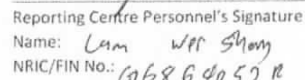 Reporting Centre Personnel's Signature
Name: Lam Wei Shang
NRIC/FIN No.: